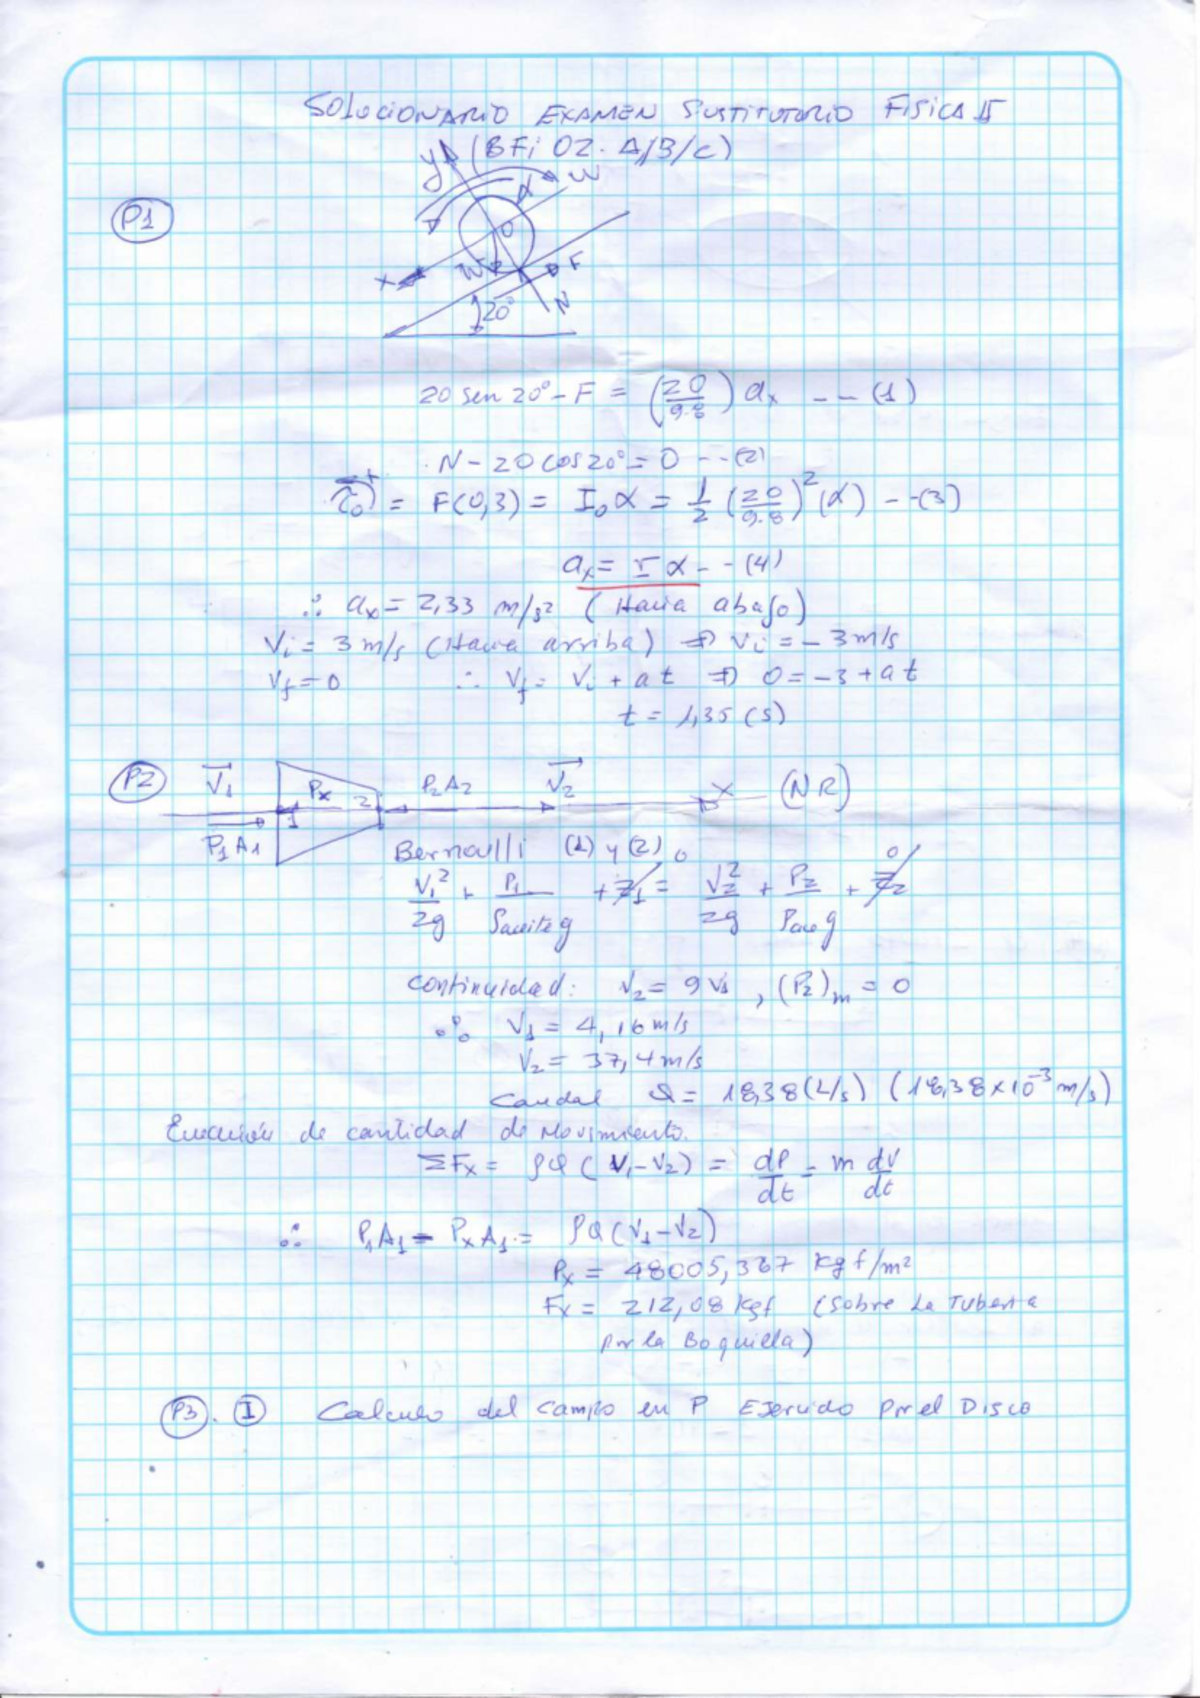 SOLUCIONARIO EXAMEN SUSTITUTORIO FISICA II
(BFI 02. A/B/C)
P1
y α ω
O
x W F
20° N
20 sen 20° - F = (20/9.8) ax -- (1)
N - 20 cos 20° = 0 -- (2)
τo = F(0,3) = Io α = 1/2 (20/9.8)² (α) -- (3)
ax = r α -- (4)
∴ ax = 2,33 m/s² (Hacia abajo)
Vi = 3 m/s (Hacia arriba) ⇒ Vi = -3 m/s
Vf = 0 ∴ Vf = Vi + at ⇒ 0 = -3 + at
t = 1,35 (s)
P2 V1 Px 2 P2A2 V2 X (NR)
1
P1A1
Bernoulli (1) y (2)
V1²/2g + P1/ρaceite g + Z1 = V2²/2g + P2/ρac g + Z2
0 0
Continuidad: V2 = 9V1, (P2)m = 0
∴ V1 = 4,16 m/s
V2 = 37,4 m/s
Caudal Q = 18,38 (L/s) (18,38 x 10⁻³ m/s)
Ecuación de cantidad de Movimiento.
ΣFx = ρQ (V1 - V2) = dP/dt = m dV/dt
∴ P1A1 - PxA1 = ρQ (V1 - V2)
Px = 48005,367 Kgf/m²
Fx = 212,08 Kgf (Sobre La Tuberia
por la Boquilla)
P3. I Calculo del campo en P Ejercido por el Disco